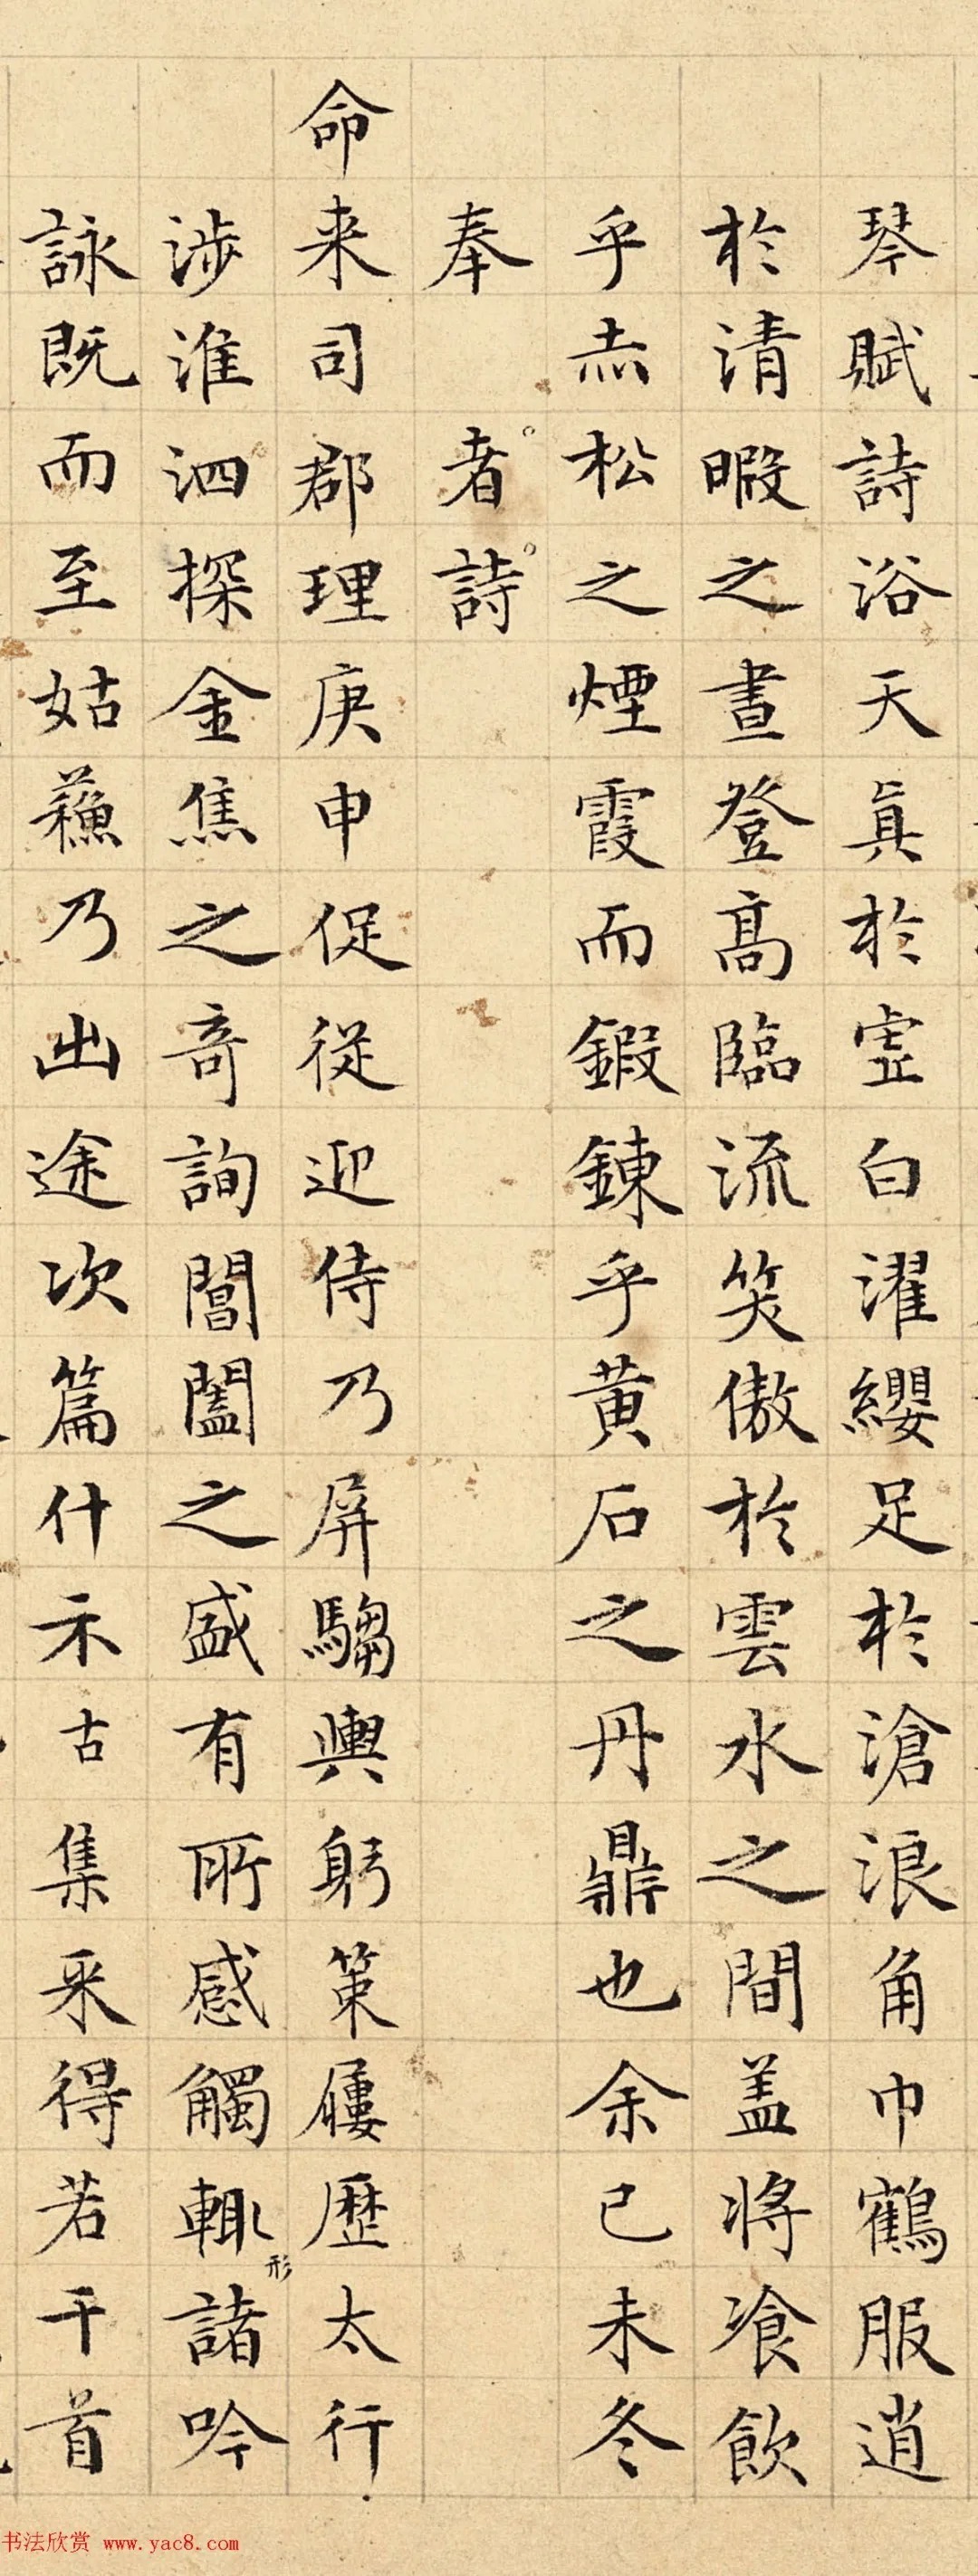 琴賦詩浴天真於虛白濯纓足於滄浪角巾鶴服逍
於清暇之晝登高臨流笑傲於雲水之間盖將飡飲
乎赤松之煙霞而鍜鍊乎黄石之丹鼎也余己未冬
奉 者詩
命来司郡理庚申促從迎侍乃屏騶輿躬策屨歷太行
渉淮泗探金焦之竒詢閶闔之盛有所感觸輒形諸吟
詠既而至姑蘓乃出途次篇什示古集采得若干首
书法欣赏 www.yac8.com